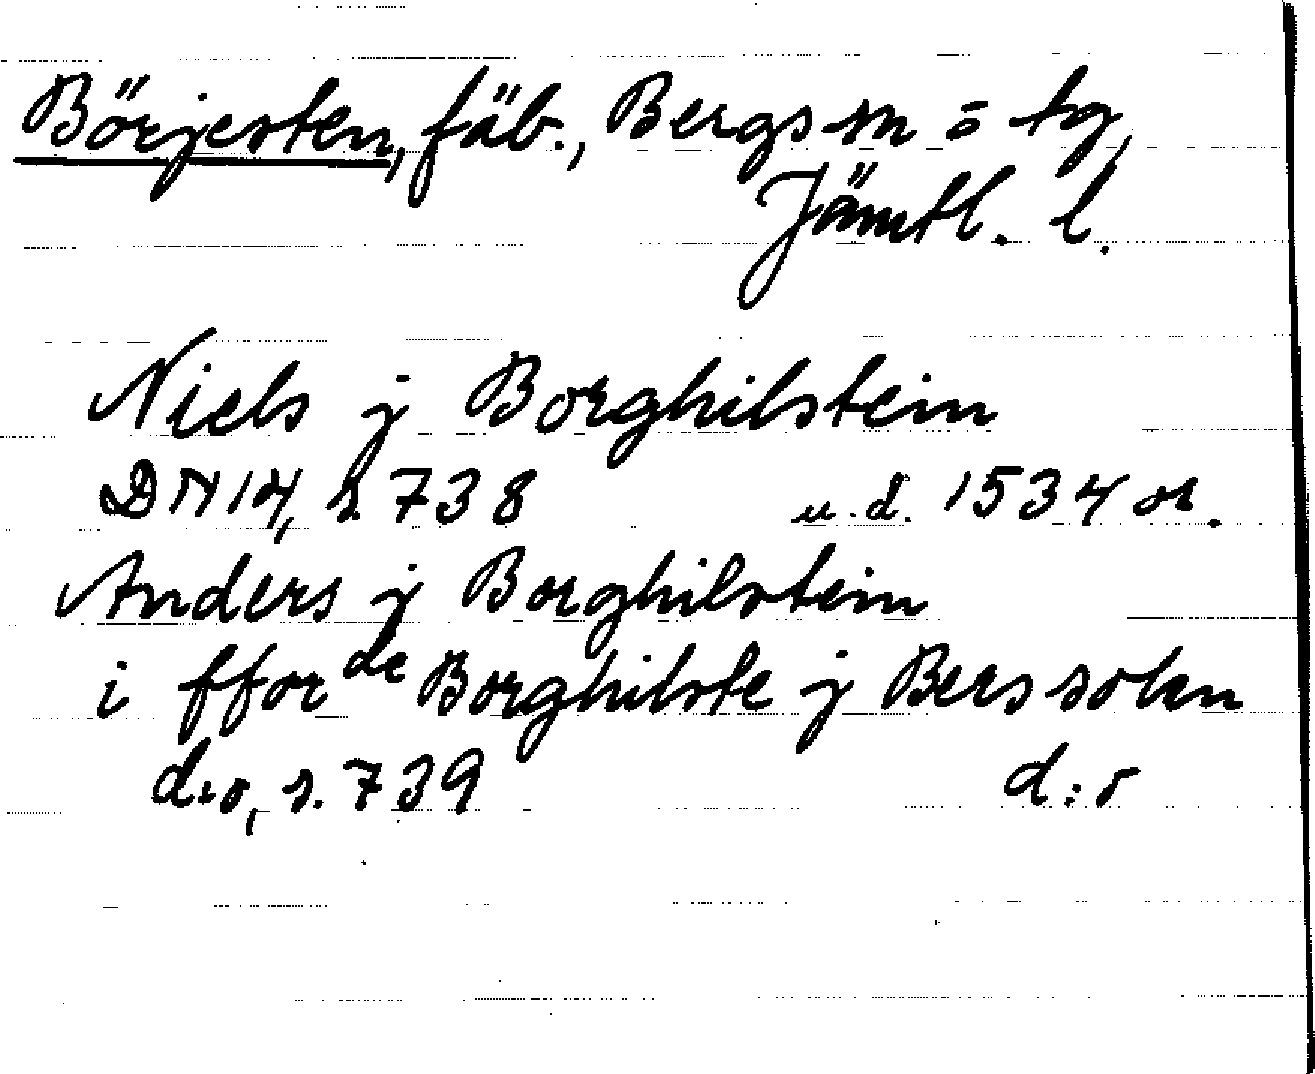 Börjesten, fäb., Bergs sn o tg,
Jämtl. l.
Niels j Borghilstein
DN 14, s 738 u.d. 1534 or.
Anders j Borghilstein
i ffor de Borghilste j Bers soken
d:o, s. 739 d:o